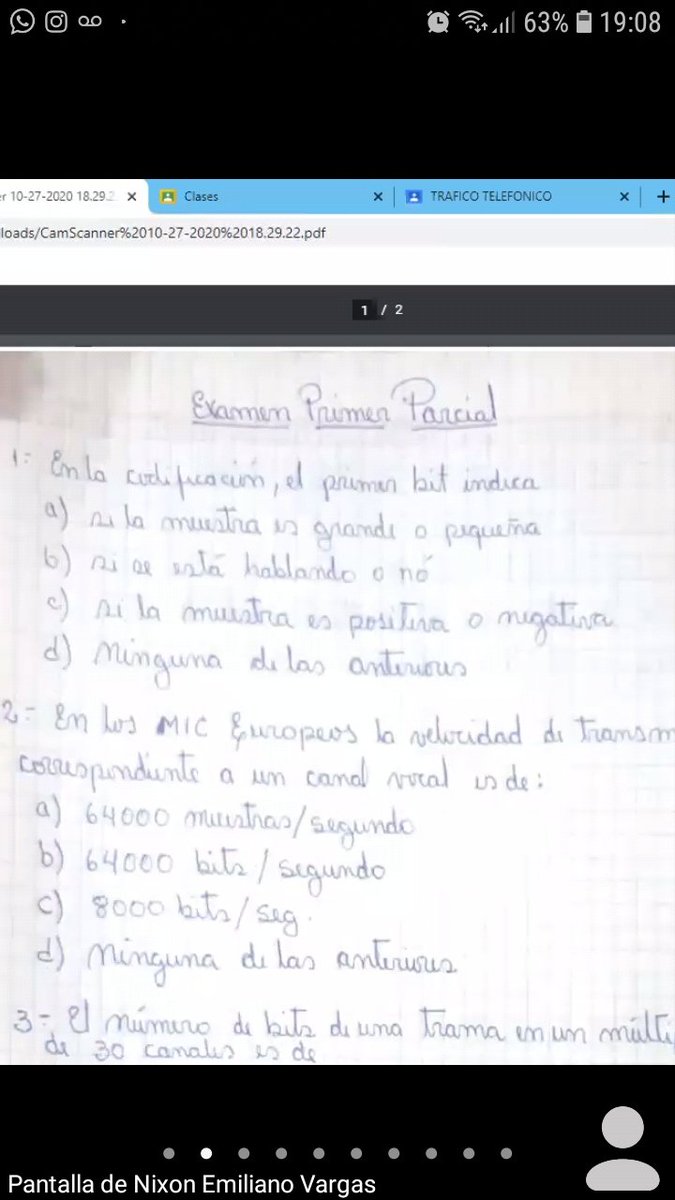 63% 19:08
er 10-27-2020 18.29.2
Clases
TRAFICO TELEFONICO
loads/CamScanner%2010-27-2020%2018.29.22.pdf
1 / 2
Examen Primer Parcial
1= En la codificación, el primer bit indica
a) si la muestra es grande o pequeña
b) si se está hablando o nó
c) si la muestra es positiva o negativa
d) Ninguna de las anteriores
2= En los MIC Europeos la velocidad de transm
correspondiente a un canal vocal es de:
a) 64000 muestras/segundo
b) 64000 bits/segundo
c) 8000 bits/seg.
d) Ninguna de las anteriores
3= El número de bits de una trama en un múlti
de 30 canales es de
Pantalla de Nixon Emiliano Vargas